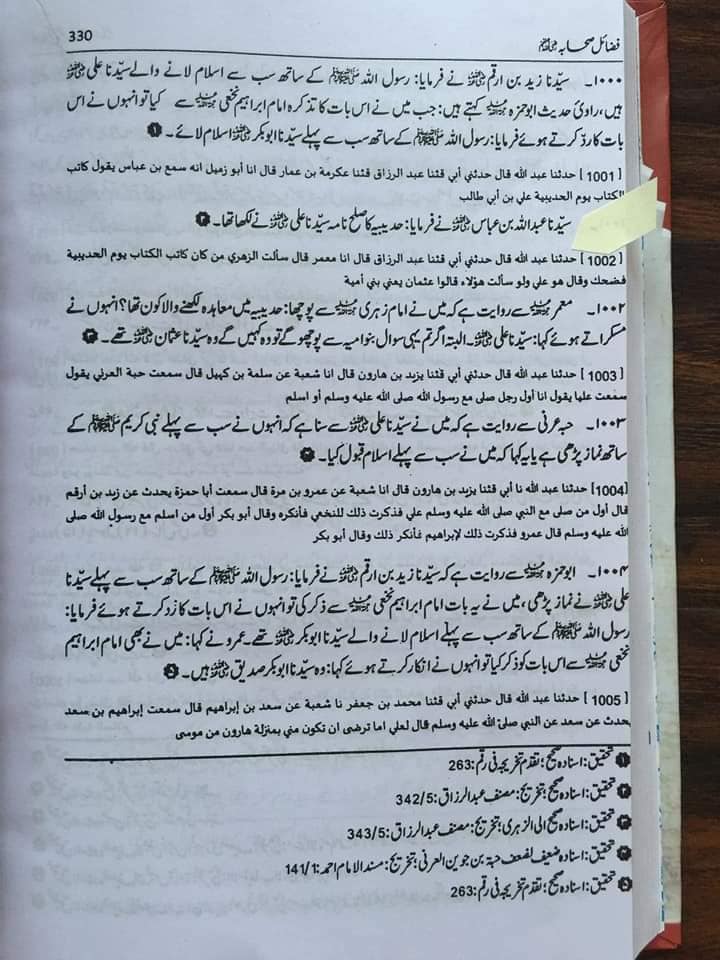 فضائل صحابہ ﷢
330
۱۰۰۰۔ سیّدنا زید بن ارقم ﷜ نے فرمایا: رسول اللہ ﷺ کے ساتھ سب سے اسلام لانے والے سیّدنا علی ﷜
ہیں، راویٔ حدیث ابوحمزہ ﷫ کہتے ہیں: جب میں نے اس بات کا تذکرہ امام ابراہیم نخعی ﷫ سے کیا تو انہوں نے اس
بات کا ردّ کرتے ہوئے فرمایا: رسول اللہ ﷺ کے ساتھ سب سے پہلے سیّدنا ابوبکر ﷜ اسلام لائے۔ ❶
[ 1001 ] حدثنا عبد الله قال حدثني أبي قثنا عبد الرزاق قثنا عكرمة بن عمار قال انا أبو زميل انه سمع بن عباس يقول كاتب
الكتاب يوم الحديبية علي بن أبي طالب
سیّدنا عبداللہ بن عباس ﷜ نے فرمایا: حدیبیہ کا صلح نامہ سیّدنا علی ﷜ نے لکھا تھا۔ ❷
[ 1002 ] حدثنا عبد الله قال حدثني أبي قثنا عبد الرزاق قال انا معمر قال سألت الزهري من كان كاتب الكتاب يوم الحديبية
فضحك وقال هو علي ولو سألت هؤلاء قالوا عثمان يعني بني أمية
۱۰۰۲۔ معمر ﷫ سے روایت ہے کہ میں نے امام زہری ﷫ سے پوچھا: حدیبیہ میں معاہدہ لکھنے والا کون تھا؟ انہوں نے
مسکراتے ہوئے کہا: سیّدنا علی ﷜۔ البتہ اگر تم یہی سوال بنو امیہ سے پوچھو گے تو وہ کہیں گے وہ سیّدنا عثمان ﷜ تھے۔ ❸
[ 1003 ] حدثنا عبد الله قال حدثني أبي قثنا يزيد بن هارون قال انا شعبة عن سلمة بن كهيل قال سمعت حبة العرني يقول
سمعت عليا يقول انا أول رجل صلى مع رسول الله صلى الله عليه وسلم أو اسلم
۱۰۰۳۔ حبہ عرنی سے روایت ہے کہ میں نے سیّدنا علی ﷜ سے سنا ہے کہ انہوں نے سب سے پہلے نبی کریم ﷺ کے
ساتھ نماز پڑھی ہے یا یہ کہا کہ میں نے سب سے پہلے اسلام قبول کیا۔ ❹
[1004] حدثنا عبد الله نا أبي قثنا يزيد بن هارون قال انا شعبة عن عمرو بن مرة قال سمعت أبا حمزة يحدث عن زيد بن أرقم
قال أول من صلى مع النبي صلى الله عليه وسلم علي فذكرت ذلك للنخعي فأنكره وقال أبو بكر أول من اسلم مع رسول الله صلى
الله عليه وسلم قال عمرو فذكرت ذلك لإبراهيم فأنكر ذلك وقال أبو بكر
۱۰۰۴۔ ابوحمزہ ﷫ سے روایت ہے کہ سیّدنا زید بن ارقم ﷜ نے فرمایا: رسول اللہ ﷺ کے ساتھ سب سے پہلے سیّدنا
علی ﷜ نے نماز پڑھی، میں نے یہ بات امام ابراہیم نخعی ﷫ سے ذکر کی تو انہوں نے اس بات کا ردّ کرتے ہوئے فرمایا:
رسول اللہ ﷺ کے ساتھ سب سے پہلے اسلام لانے والے سیّدنا ابوبکر ﷜ تھے۔ عمرو نے کہا: میں نے بھی امام ابراہیم
نخعی ﷫ سے اس بات کو ذکر کیا تو انہوں نے انکار کرتے ہوئے کہا: وہ سیّدنا ابوبکر صدیق ﷜ ہیں۔ ❺
[ 1005 ] حدثنا عبد الله قال حدثني أبي قثنا محمد بن جعفر نا شعبة عن سعد بن إبراهيم قال سمعت إبراهيم بن سعد
يحدث عن سعد عن النبي صلى الله عليه وسلم قال لعلي اما ترضى ان تكون مني بمنزلة هارون من موسى
❶ تحقیق: اسنادہ صحیح؛ تقدم تخریجہ فی رقم: 263
❷ تحقیق: اسنادہ صحیح؛ تخریج: مصنف عبدالرزاق: 342/5
❸ تحقیق: اسنادہ صحیح الی الزہری؛ تخریج: مصنف عبدالرزاق: 343/5
❹ تحقیق: اسنادہ ضعیف لضعف حبۃ بن جوین العرنی؛ تخریج: مسند الامام احمد: 141/1
❺ تحقیق: اسنادہ صحیح؛ تقدم تخریجہ فی رقم: 263